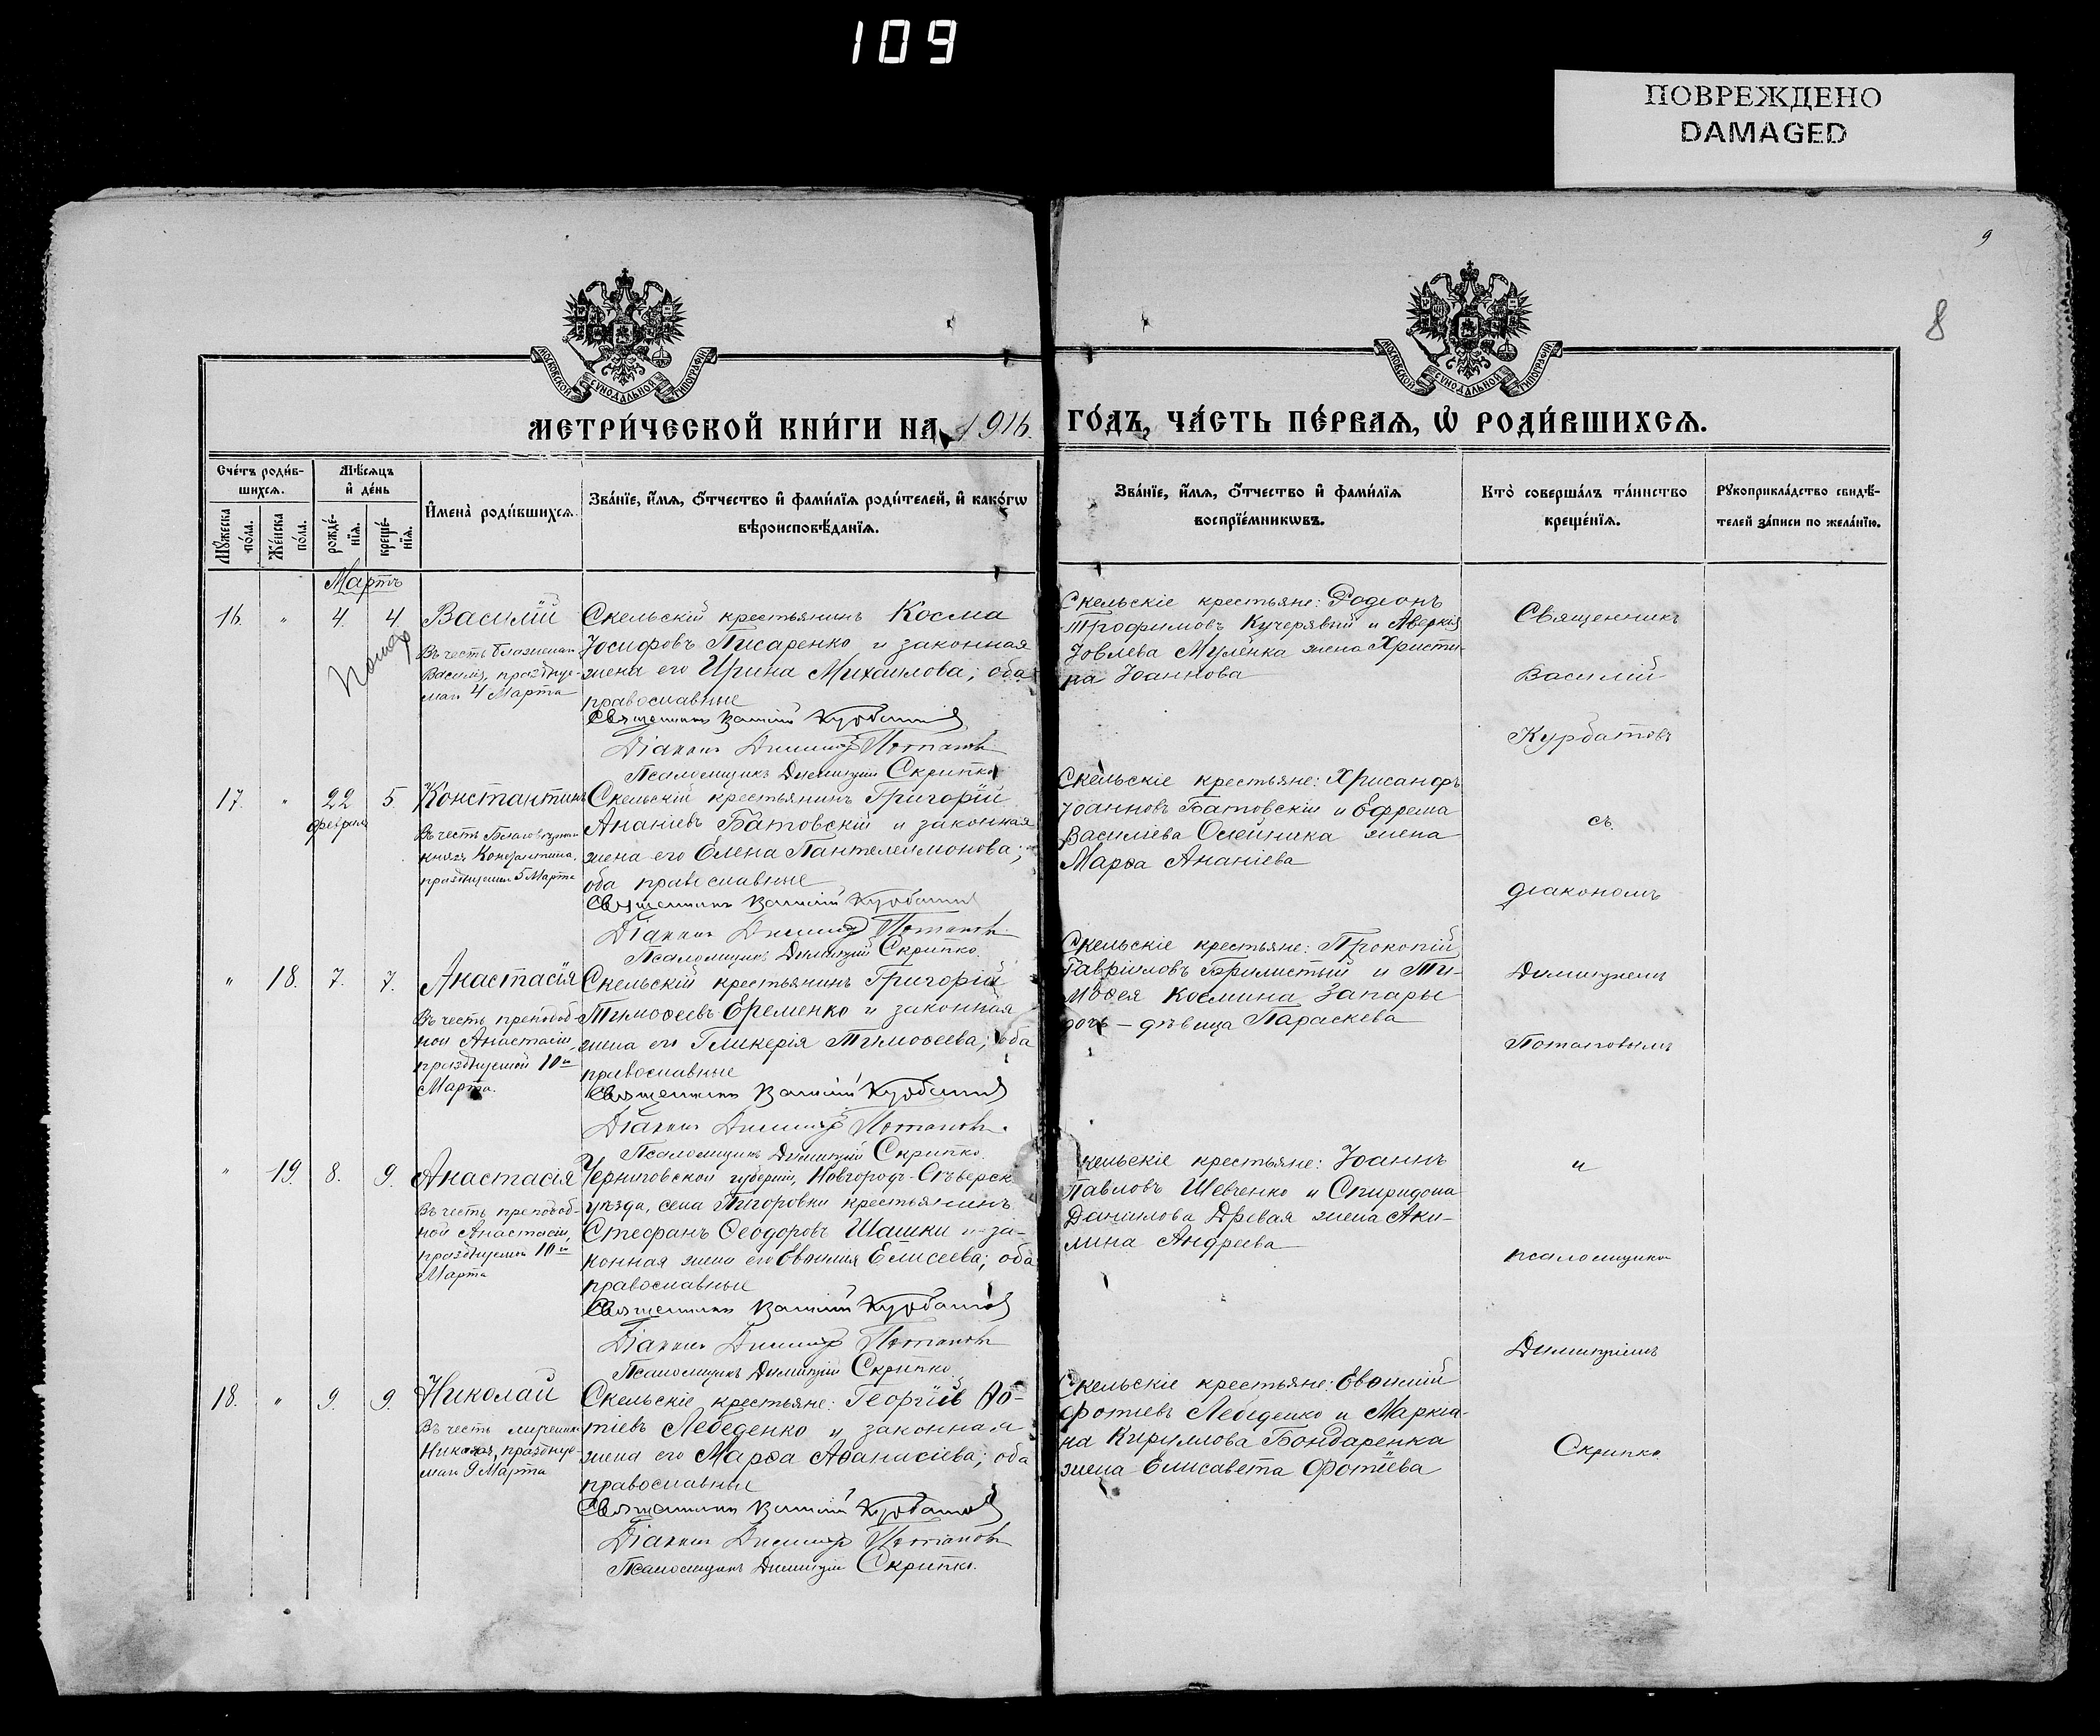 109
ПОВРЕЖДЕНО
DAMAGED
9
8
МОСКОВСКОЙ СѴНОДАЛЬНОЙ ТИПОГРАФІИ
МОСКОВСКОЙ СѴНОДАЛЬНОЙ ТИПОГРАФІИ
МЕТРИ́ЧЕСКОЙ КНИ́ГИ НА 1916.
ГО́ДЪ, ЧА́СТЬ ПЕ́РВАѦ, Ѡ҆ РОДИ́ВШИХСѦ.
Сче́тъ роди́в-
шихсѧ.
Мꙋ́жеска по́ла.
Же́нска по́ла.
Мѣ́сѧцъ
и҆ де́нь
рожде́-
нїѧ.
креще́-
нїѧ.
И҆мена̀ роди́вшихсѧ.
Зва́нїе, и҆́мѧ, ѻ҆́тчество и҆ фами́лїѧ роди́телей, и҆ како́гѡ
вѣроисповѣ́данїѧ.
Зва́нїе, и҆́мѧ, ѻ҆́тчество и҆ фами́лїѧ
воспрїе́мникѡвъ.
Кто̀ соверша́лъ та́инство
креще́нїѧ.
Рꙋкоприкла́дство свидѣ́-
телей за́писи по жела́нїю.
Мартъ
16. " 4. 4. Василій
Въ честь блаженн.
Василія, празднуе-
маго 4 Марта
Скельскій крестьянинъ Косма
Іосифовъ Писаренко и законная
жена его Ирина Михаилова; оба
православные
Священникъ Василій Курбатовъ
Діаконъ Димитрій Потаповъ
Псаломщикъ Димитрій Скрипко
Скельскіе крестьяне: Родіонъ
Трофимовъ Кучерявый и Аверкія
Іовлева Муленка жена Христи-
на Іоаннова
Священникъ
Василій
Курбатовъ
17. " 22 5. Константинъ
февраля
Въ честь Благовѣрнаго
князя Константина,
празднуемаго 5 Марта
Скельскій крестьянинъ Григорій
Ананіевъ Батовскій и законная
жена его Елена Пантелеимонова;
оба православные
Священникъ Василій Курбатовъ
Діаконъ Димитрій Потаповъ
Псаломщикъ Димитрій Скрипко.
Скельскіе крестьяне: Хрисанфъ
Іоанновъ Батовскій и Ефрема
Василіева Олейника жена
Марѳа Ананіева
съ
діакономъ
" 18. 7. 7. Анастасія
Въ честь преподоб-
ной Анастасіи,
празднуемой 10го
Марта.
Скельскій крестьянинъ Григорій
Тимоѳеевъ Еременко и законная
жена его Гликерія Тимоѳеева; оба
православные
Священникъ Василій Курбатовъ
Діаконъ Димитрій Потаповъ.
Псаломщикъ Димитрій Скрипко.
Скельскіе крестьяне: Прокопій
Гавріиловъ Бримистый и Ти-
моѳея Космина Запары
дочь - дѣвица Параскева
Димитріемъ
Потаповымъ
" 19. 8. 9. Анастасія
Въ честь преподоб-
ной Анастасіи,
празднуемой 10го
Марта
Черниговской губерніи, Новгородъ-Сѣверск
уѣзда, села крестьянинъ
Стефанъ Ѳеодоровъ Шашки и за-
конная жена его Евѳимія Елисеева; оба
православные
Священникъ Василій Курбатовъ
Діаконъ Димитрій Потаповъ
Псаломщикъ Димитрій Скрипко.
кельскіе крестьяне: Іоаннъ
Павловъ Шевченко и Спиридона
Данилова Древая жена Аки-
лина Андреева
и
псаломщикомъ
Димитріемъ
18. " 9. 9. Николай
Въ честь мученика
Николая, празднуе-
маго 9 Марта
Скельскіе крестьяне: Георгій Фо-
тіевъ Лебеденко и законная
жена его Марѳа Аѳанасіева; оба
православные
Священникъ Василій Курбатовъ
Діаконъ Димитрій Потаповъ
Псаломщикъ Димитрій Скрипко.
Скельскіе крестьяне: Евѳимій
Фотіевъ Лебеденко и Маркіа-
на Кириллова Бондаренка
жена Елисавета Фотіева
Скрипко